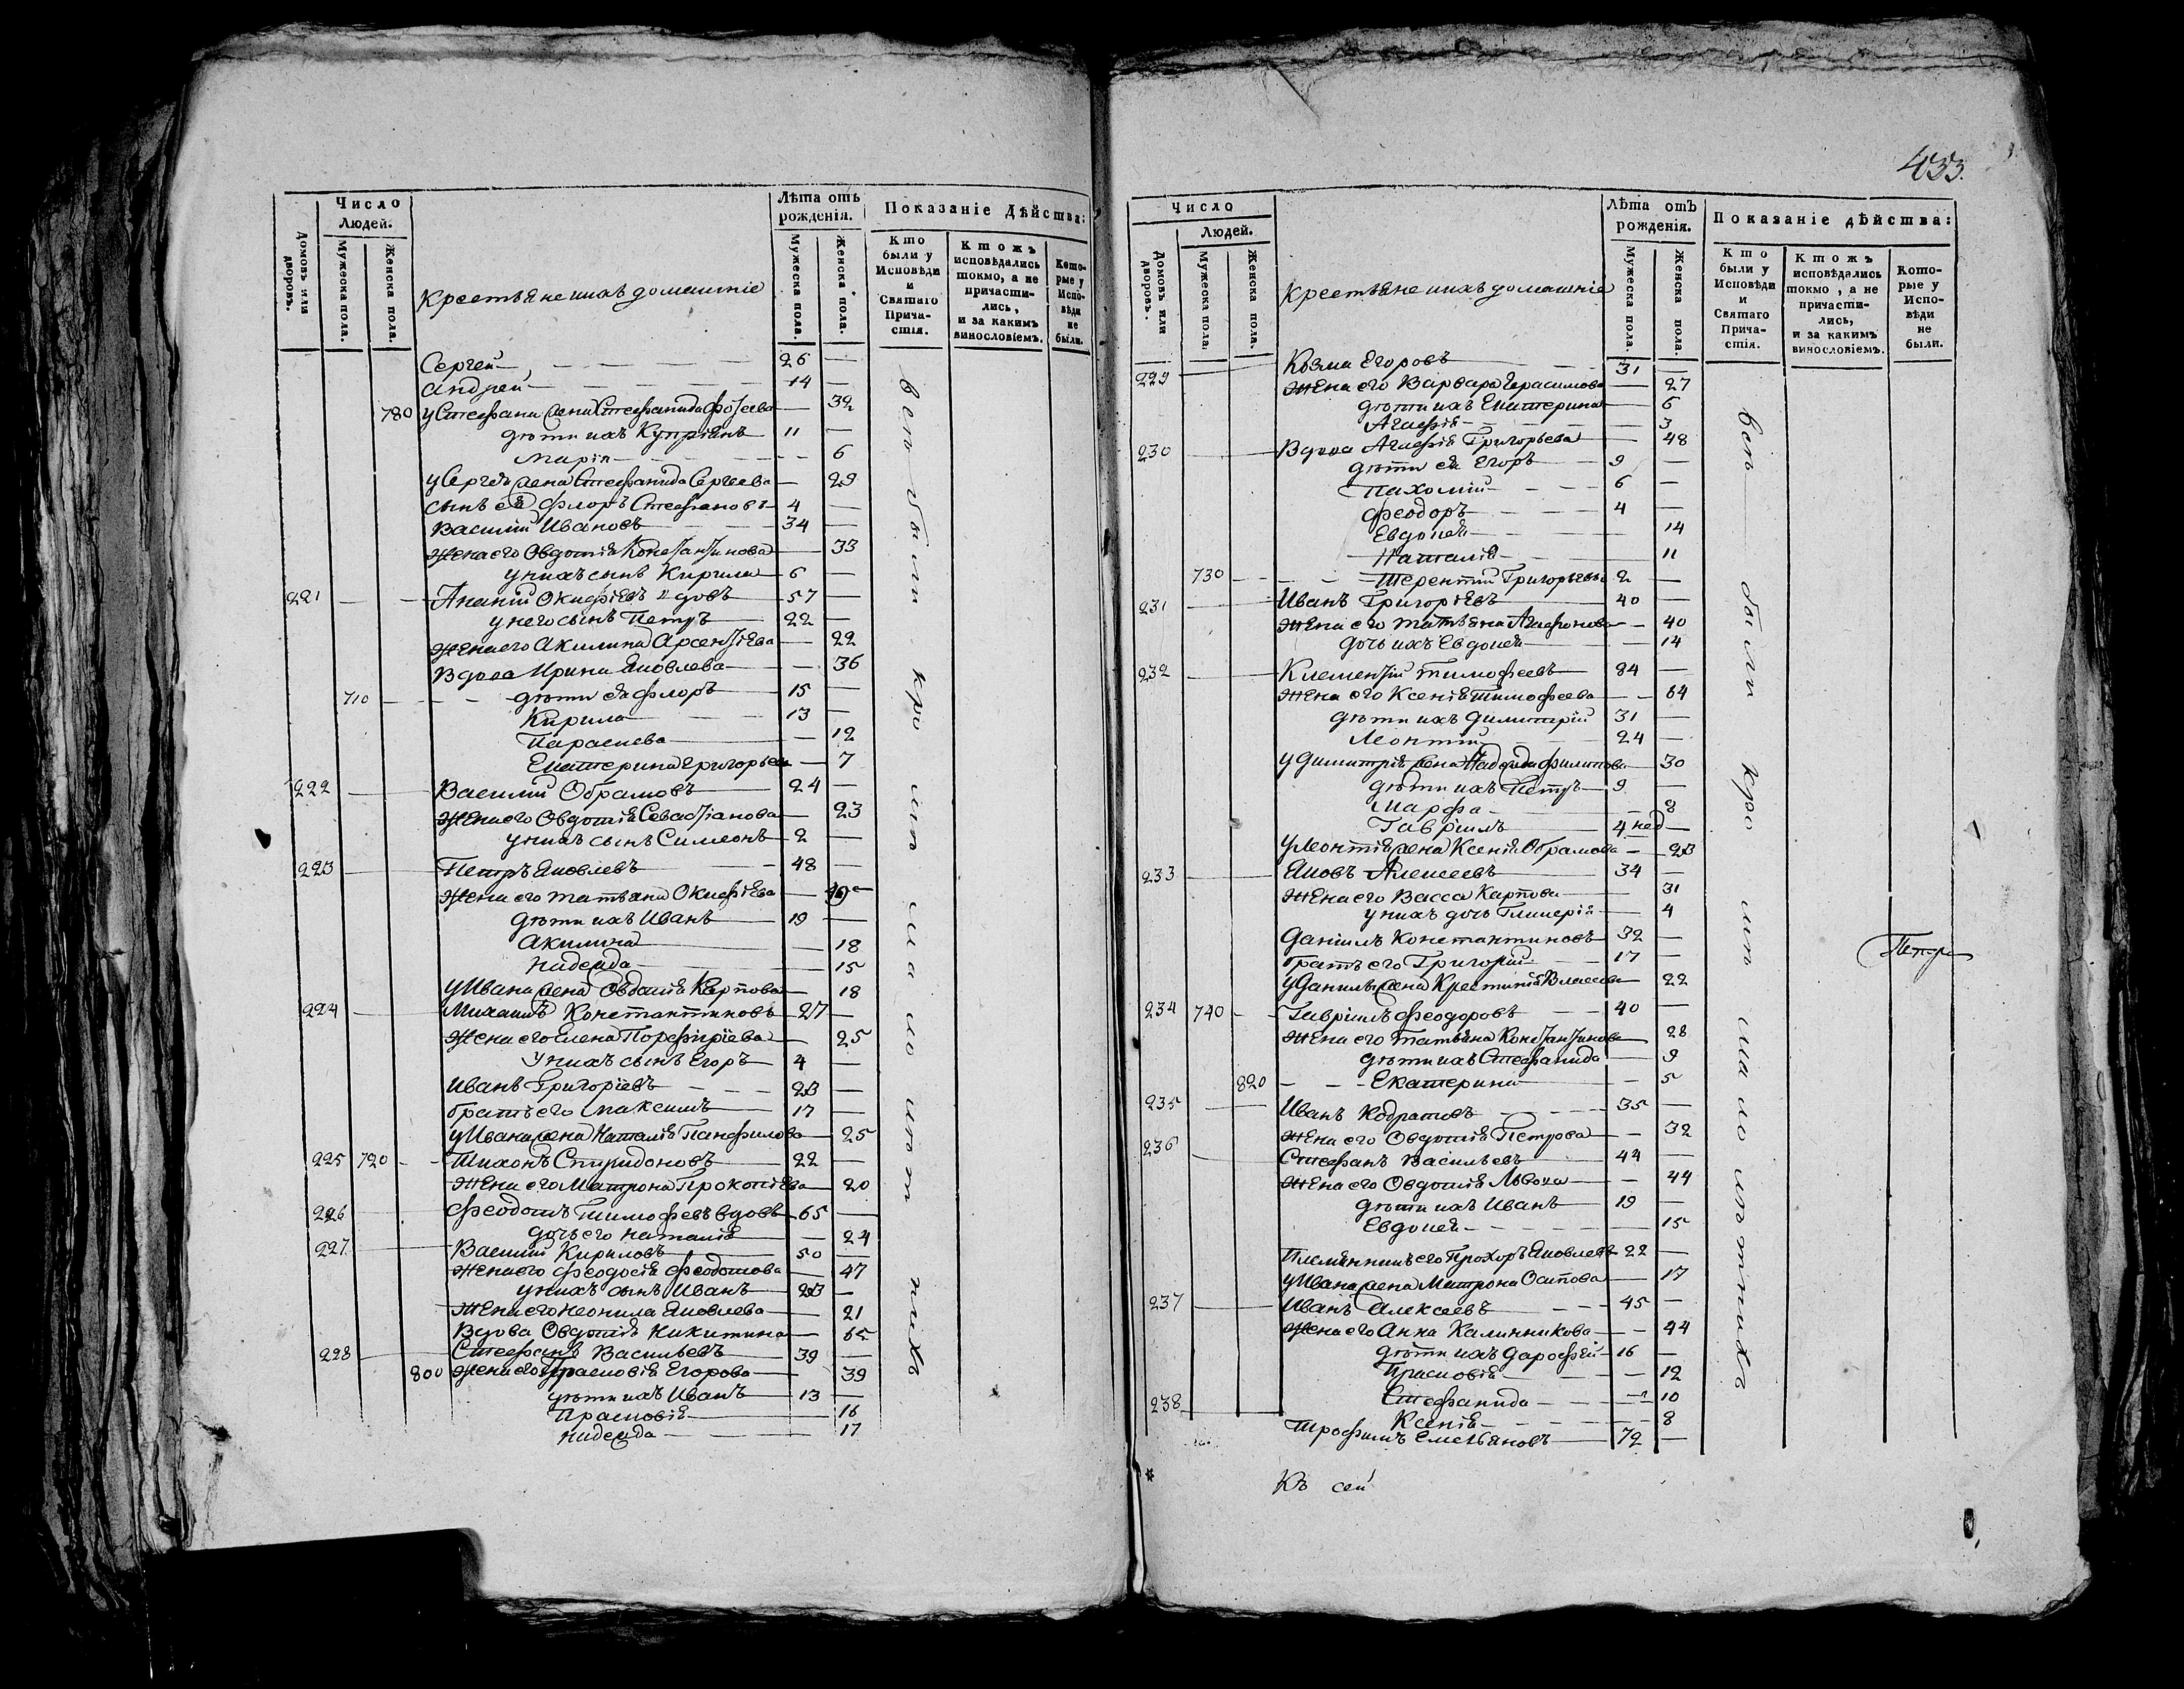 Число Людей.
Лѣта отъ рожденія.
Показаніе дѣйства:
Домовъ или дворовъ.
Мужеска пола.
Женска пола.
Крестьяне и ихъ домашніе
Мужеска пола.
Женска пола.
Кто были у Исповѣди и Святаго Причастія.
Ктожъ исповѣдались токмо, а не причастились, и за какимъ винословіемъ.
Которые у Исповѣди не были.
Сергей 26
Андрей 14
780 у Стефана жена Стефанида 32
дѣти ихъ Купріянъ 11
Марія 6
у Сергѣя жена Стефанида Сергеева 29
сынъ ея Флоръ Стефановъ 4
Василій Ивановъ 34
Жена его Овдотія Константинова 33
у нихъ сынъ Кирила 6
221 Ананій Окифіевъ вдовъ 57
у него сынъ Петръ 22
Жена его Акилина Арсентіева 22
Вдова Ирина Яковлева 36
710 дѣти ея Флоръ 15
Кирила 13
Параскева 12
Екатерина Григорьевы 7
222 Василий Обрамовъ 24
Жена его Овдотія Севастіанова 23
у нихъ сынъ Симеонъ 2
223 Петръ Яковлевъ 48
Жена его Татьяна Окифіева
дѣти ихъ Иванъ 19
Акилина 18
Надежда 15
у Ивана жена Овдотія Карпова 18
224 Михаилъ Константиновъ 27
Жена его Елена Порфиріева 25
у нихъ сынъ Егоръ 4
Иванъ Григоріевъ 23
братъ его Максимъ 17
у Ивана жена Наталія Панфилова 25
225 720 Тихонъ Спиридоновъ 22
Жена его Матрона Прокопіева 20
226 Феодотъ Тимофевъ вдовъ 65
дочь его Наталія 24
227 Василій Кириловъ 50
Жена его Феодосія Феодотова 47
у нихъ сынъ Иванъ 23
Жена его Неонила Яковлева 21
Вдова Овдотія Никитина 65
228 Стефанъ Васильевъ 39
800 Жена его Прасковія Егорова 39
дѣти ихъ Иванъ 13
Прасковія 16
Надежда 17
433.
Число Людей.
Лѣта отъ рожденія.
Показаніе дѣйства:
Домовъ или дворовъ.
Мужеска пола.
Женска пола.
Крестьяне и ихъ домашніе
Мужеска пола.
Женска пола.
Кто были у Исповѣди и Святаго Причастія.
Ктожъ исповѣдались токмо, а не причастились, и за какимъ винословіемъ.
Которые у Исповѣди не были.
229 Козма Егоровъ 31
Жена его Варвара Герасимова 27
дѣти ихъ Екатерина 6
Агафія 3
230 Вдова Агафія Григорьева 48
дѣти ея Егоръ 9
Пахомій 6
Феодоръ 4
Евдокея 14
Наталія 11
730 Терентій Григорьевы 2
231 Иванъ Григоріевъ 40
Жена его Татьяна Агафонова 40
дочь ихъ Евдокея 14
232 Климентій Тимофеевъ 84
Жена его Ксенія Тимофеева 64
дѣти ихъ Димитрій 31
Леонтій 24
у Димитрія жена Надежда Филипова 30
дѣти ихъ Петръ 9
Марфа 8
Гавріилъ 4 нед
у Леонтія жена Ксенія Обрамова 23
233 Яковъ Алексеевъ 34
Жена его Васса Карпова 31
у нихъ дочь Гликерія 4
Даніилъ Константиновъ 32
братъ его Григорій 17
у Данилы жена Крестинія Власова 22
234 740 Гавріилъ Феодоровъ 40
Жена его Татьяна Константинова 28
дѣти ихъ Стефанида 9
820 Екатерина 5
235 Иванъ Кодратовъ 35
Жена его Овдотія Петрова 32
236 Стефанъ Васильевъ 44
Жена его Овдотія Львова 44
дѣти ихъ Иванъ 19
Евдокея 15
Племянникъ его Прохоръ Яковлевъ 22
у Ивана жена Матрона Осипова 17
237 Иванъ Алексеевъ 45
Жена его Анна Калинникова 44
дѣти ихъ Дарофей 16
Прасковія 12
Стефанида 10
Ксенія 8
238 Трофимъ Емельяновъ 72
Къ сей